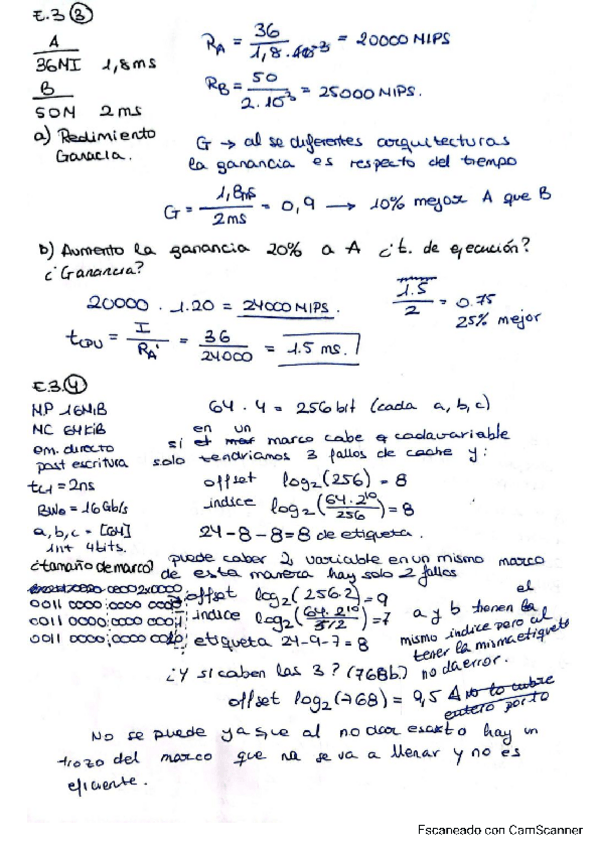 E.3 ③
A
36NI 1,8ms
B
50N 2ms
a) Redimiento
Ganacia.
R_A = 36 / 1,8·10^-3 = 20000 NIPS
R_B = 50 / 2·10^-3 = 25000 NIPS.
G → al se diferentes arquitecturas
la ganancia es respecto del tiempo
G = 1,8ms / 2ms = 0,9 → 10% mejor A que B
b) Aumento la ganancia 20% a A ¿t. de ejecución?
¿Ganancia?
20000 · 1.20 = 24000 NIPS.
1.5 / 2 = 0.75
25% mejor
t_CPU = I / R_A' = 36 / 24000 = 1.5 ms.
E.3.④
MP 16MiB
MC 64KiB
em. directo
post escritura
t_CM = 2ns
BW_0 = 16Gb/s
a, b, c = [64]
int 4bits.
¿tamaño de marco?
64 · 4 = 256 bit (cada a, b, c)
en un
si marco cabe cada variable
solo tendriamos 3 fallos de cache y:
offset log2(256) = 8
indice log2(64·2^10 / 256) = 8
24 - 8 - 8 = 8 de etiqueta.
puede caber 2 variable en un mismo marco
de esta manera hay solo 2 fallos
0011 0000 0000 0000
0011 0000 0000
0011 0000 0000
offset log2(256·2) = 9
indice log2(64·2^10 / 512) = 7
etiqueta 24-9-7 = 8
a y b tienen el
mismo indice pero al
tener la misma etiqueta
no da error.
¿Y si caben las 3? (768b.)
offset log2(768) = 9,5
No se puede ya que al no dar exacto hay un
trozo del marco que no se va a llenar y no es
eficiente.
Escaneado con CamScanner